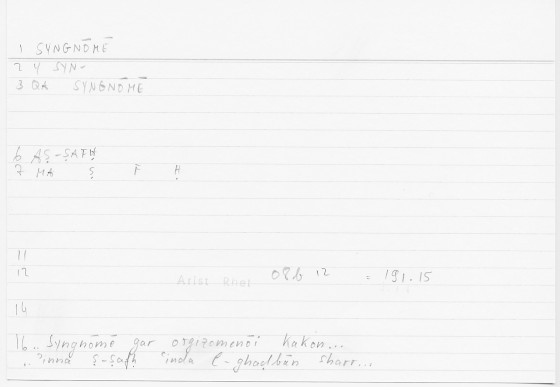 1 SYNGNŌMĒ
2 4 SYN-
3 QA SYNGNŌMĒ
6 AṢ-ṢAFḤ
7 MA Ṣ F Ḥ
11
12 Arist Rhet 08b 12 = 191.15
14
16 .. Syngnōmē gar orgizomenōi kakon...
.. 'inna ṣ-ṣafḥ 'inda l-ghaḍbān sharr...